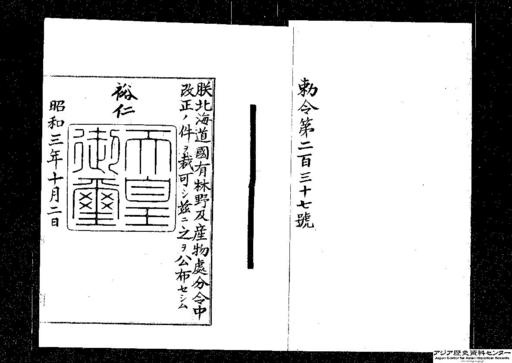 勅令第二百三十七號
朕北海道國有林野及産物處分令中
改正ノ件ヲ裁可シ茲ニ之ヲ公布セシム
裕仁
天皇
御璽
昭和三年十月二日
アジア歴史資料センター
Japan Center for Asian Historical Records